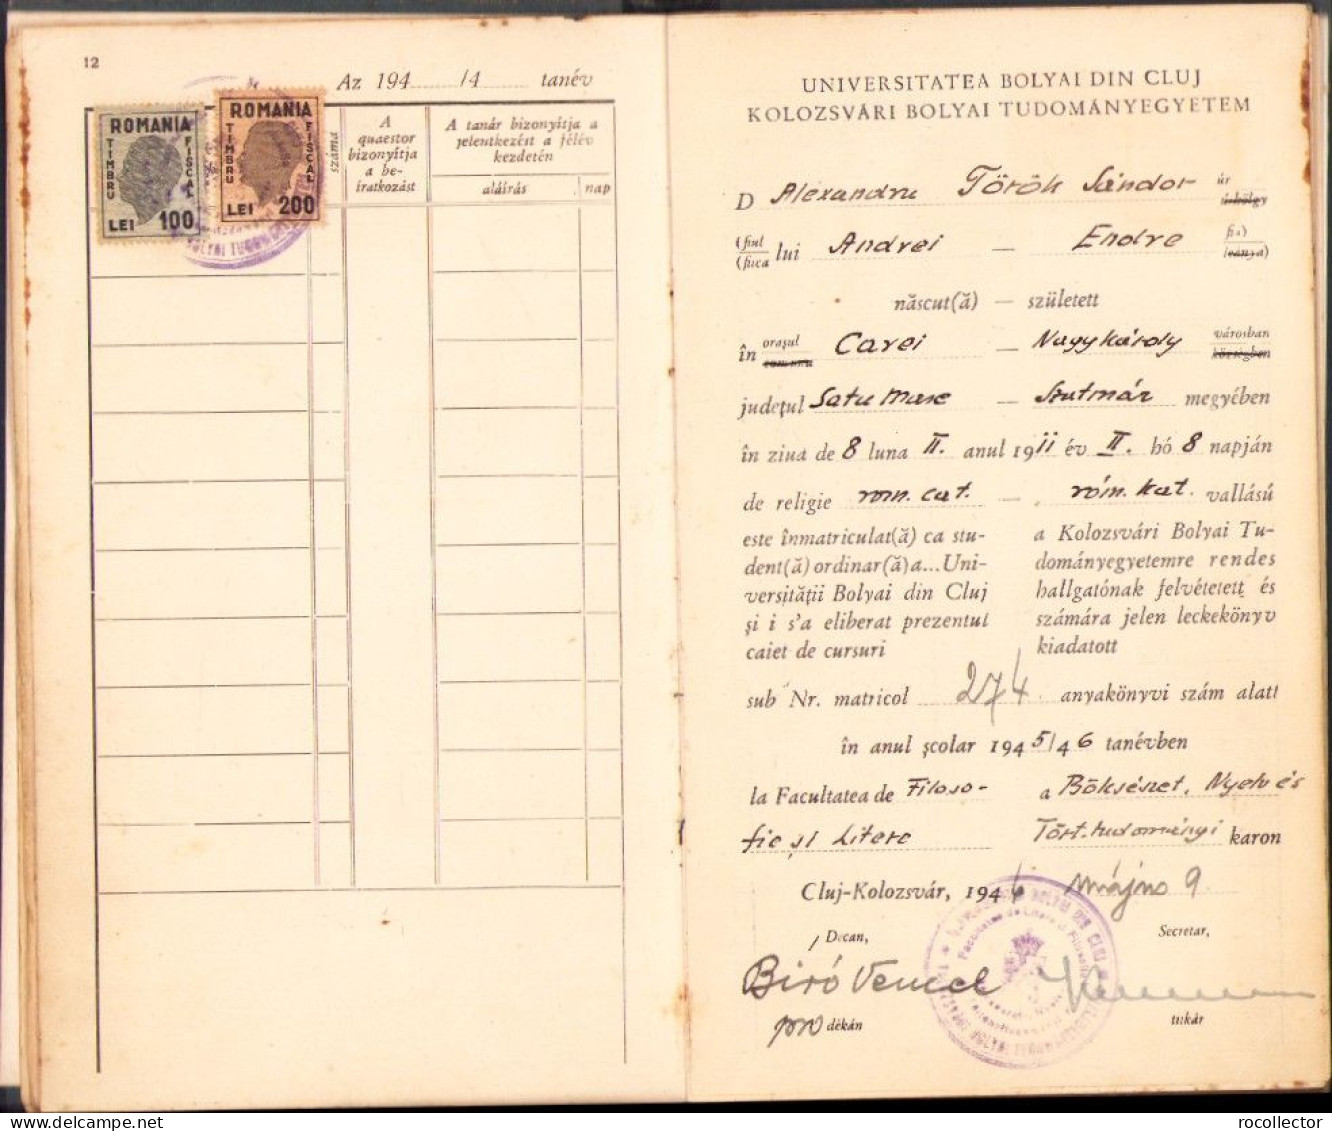 12
Az 194 /4 tanév
ROMANIA
TIMBRU
FISCAL
LEI 100
ROMANIA
TIMBRU
FISCAL
LEI 200
száma
A
quaestor
bizonyítja
a be-
iratkozást
A tanár bizonyítja a
jelentkezést a félév
kezdetén
aláírás nap
UNIVERSITATEA BOLYAI DIN CLUJ
KOLOZSVÁRI BOLYAI TUDOMÁNYEGYETEM
D Alexandru Török Sándor úr
úrhölgy
(fiul
(fiica lui Andrei — Endre fia)
leánya)
născut(ă) — született
în orașul
comuna Carei — Nagykároly városban
községben
județul Satu Mare — Szatmár megyében
în ziua de 8 luna II. anul 1911 év II. hó 8 napján
de religie rom. cat. — róm. kat. vallású
este înmatriculat(ă) ca stu-
dent(ă) ordinar(ă) a... Uni-
versității Bolyai din Cluj
și i s'a eliberat prezentul
caiet de cursuri
a Kolozsvári Bolyai Tu-
dományegyetemre rendes
hallgatónak felvétetett és
számára jelen leckekönyv
kiadatott
sub Nr. matricol 274 anyakönyvi szám alatt
în anul școlar 1945/46 tanévben
la Facultatea de Filoso- a Bölcsészet, Nyelv és
fie și Litere Tört. tudományi karon
Cluj-Kolozsvár, 1946 május 9
Decan, Secretar,
Biró Vencel
pro dékán titkár
rocollector